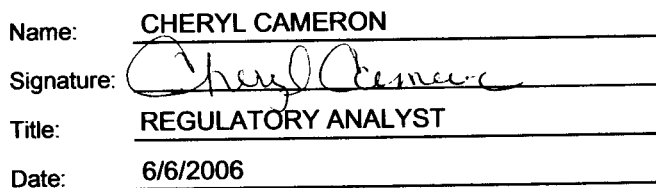 Name: CHERYL CAMERON
Signature: Cheryl Cameron
Title: REGULATORY ANALYST
Date: 6/6/2006